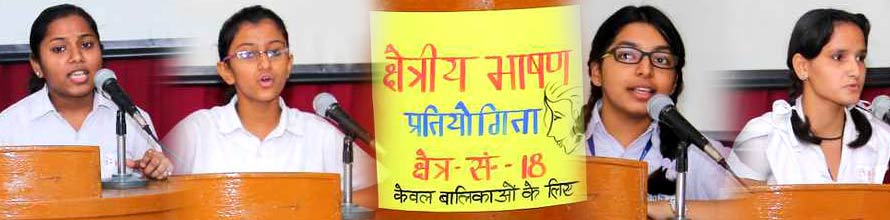 क्षेत्रीय भाषण
प्रतियोगिता
क्षेत्र-सं--18
केवल बालिकाओं के लिए